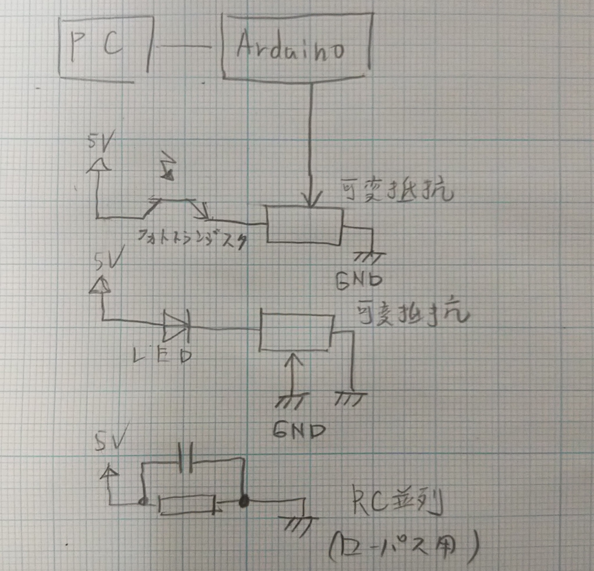 PC
Arduino
5V
可変抵抗
フォトトランジスタ
GND
5V
可変抵抗
LED
GND
5V
RC並列
(ローパス用)